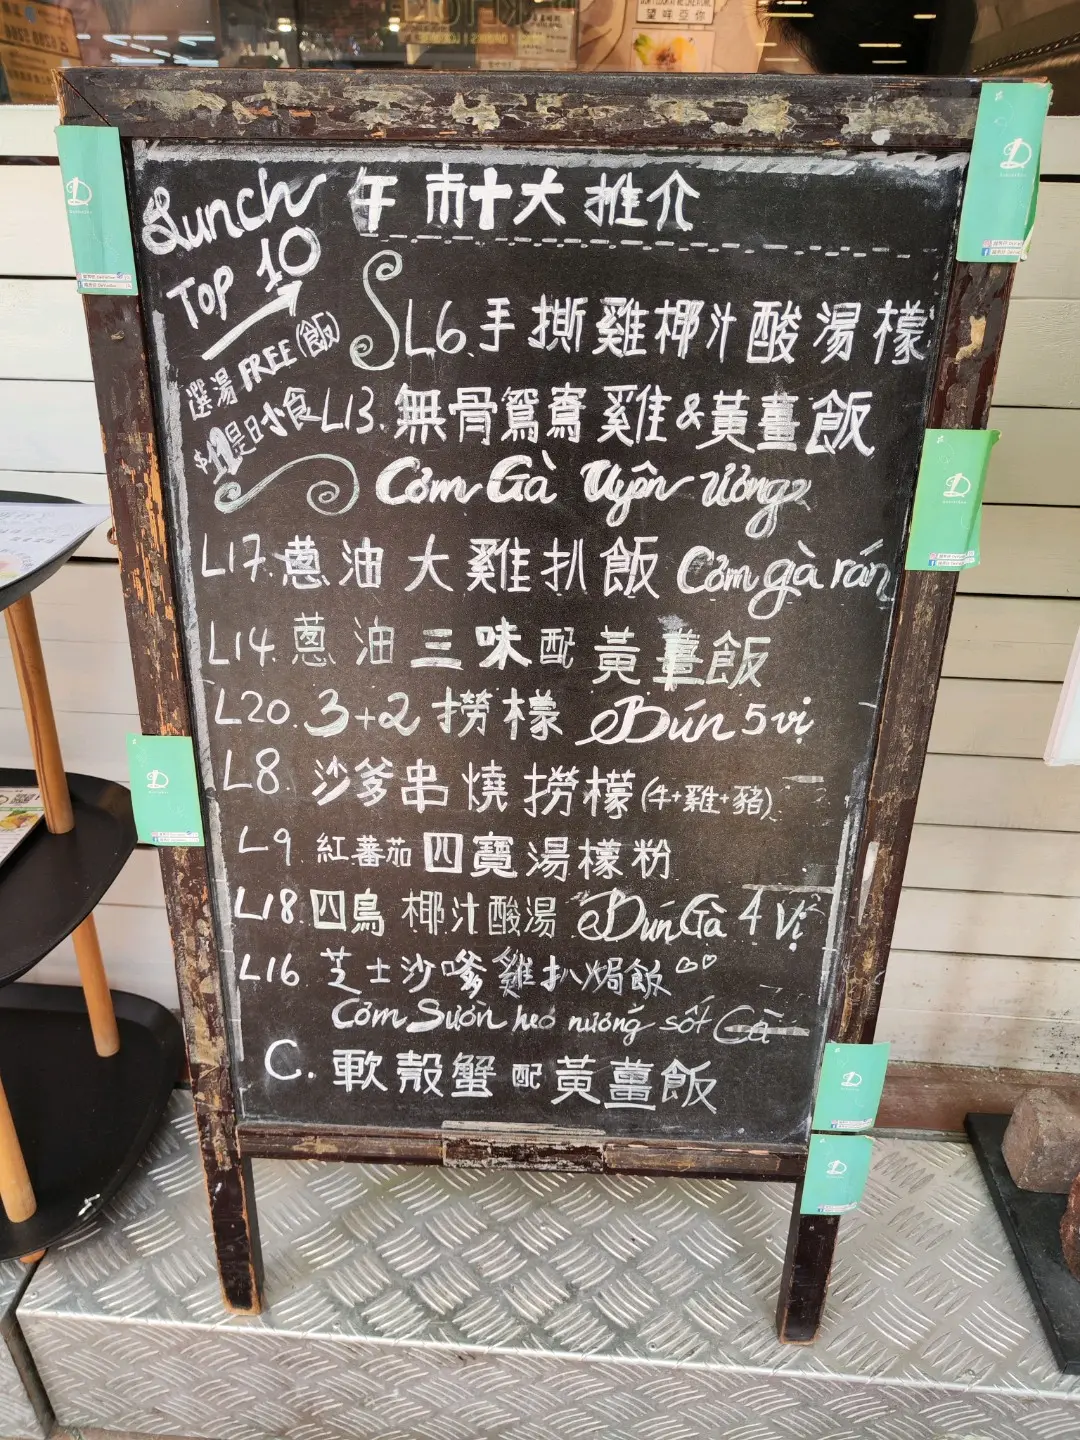 望咩亞你
Lunch 午市十大推介
TOP 10
選湯 FREE (飯)
$12是日小食
L6. 手撕雞椰汁酸湯檬
L13. 無骨鴛鴦雞&黃薑飯
Cơm Gà Uyên Ương
L17. 蔥油大雞扒飯 Cơm gà rán
L14. 蔥油三味配黃薑飯
L20. 3+2 撈檬 Bún 5 vị
L8. 沙爹串燒撈檬 (牛+雞+豬)
L9 紅蕃茄四寶湯檬粉
L18 四鳥椰汁酸湯 Bún Gà 4 Vị
L16 芝士沙嗲雞扒焗飯
Cơm Sườn heo nướng sốt Gà
C. 軟殼蟹配黃薑飯